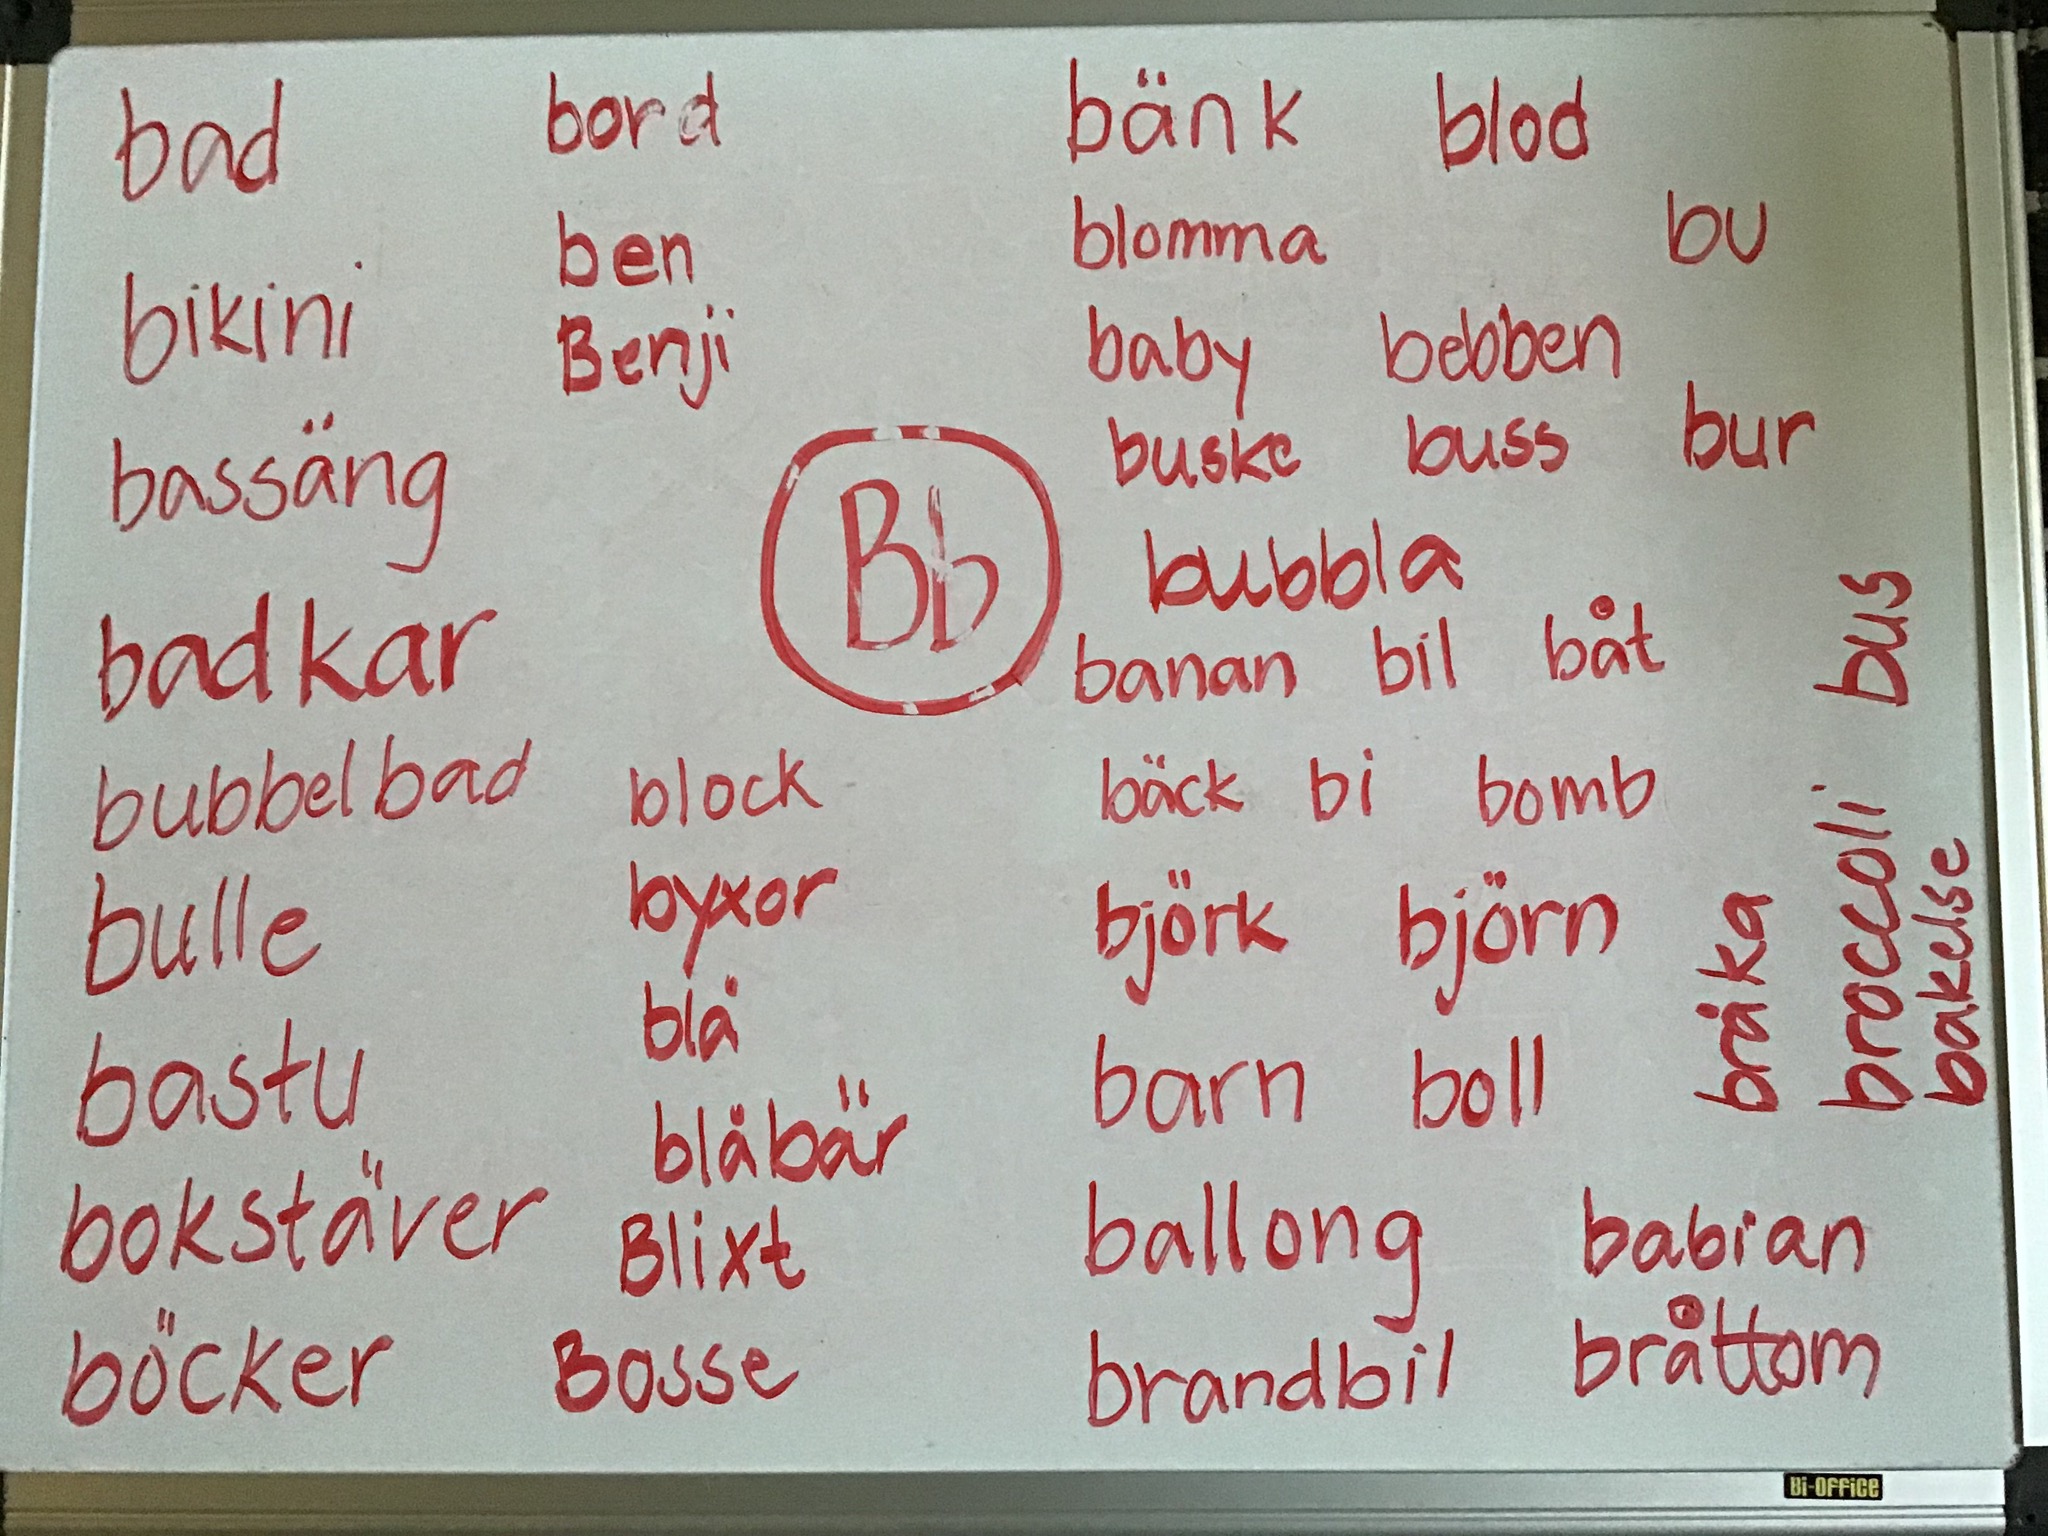 bad
bikini
bassäng
badkar
bubbelbad
bulle
bastu
bokstäver
böcker
bord
ben
Benji
Bb
block
byxor
blå
blåbär
Blixt
Bosse
bänk blod
blomma bu
baby bebben
buske buss bur
bubbla
banan bil båt
bäck bi bomb
björk björn
barn boll
ballong babian
brandbil bråttom
bråka
broccoli bus
bakelse
Bi-OFFiCE